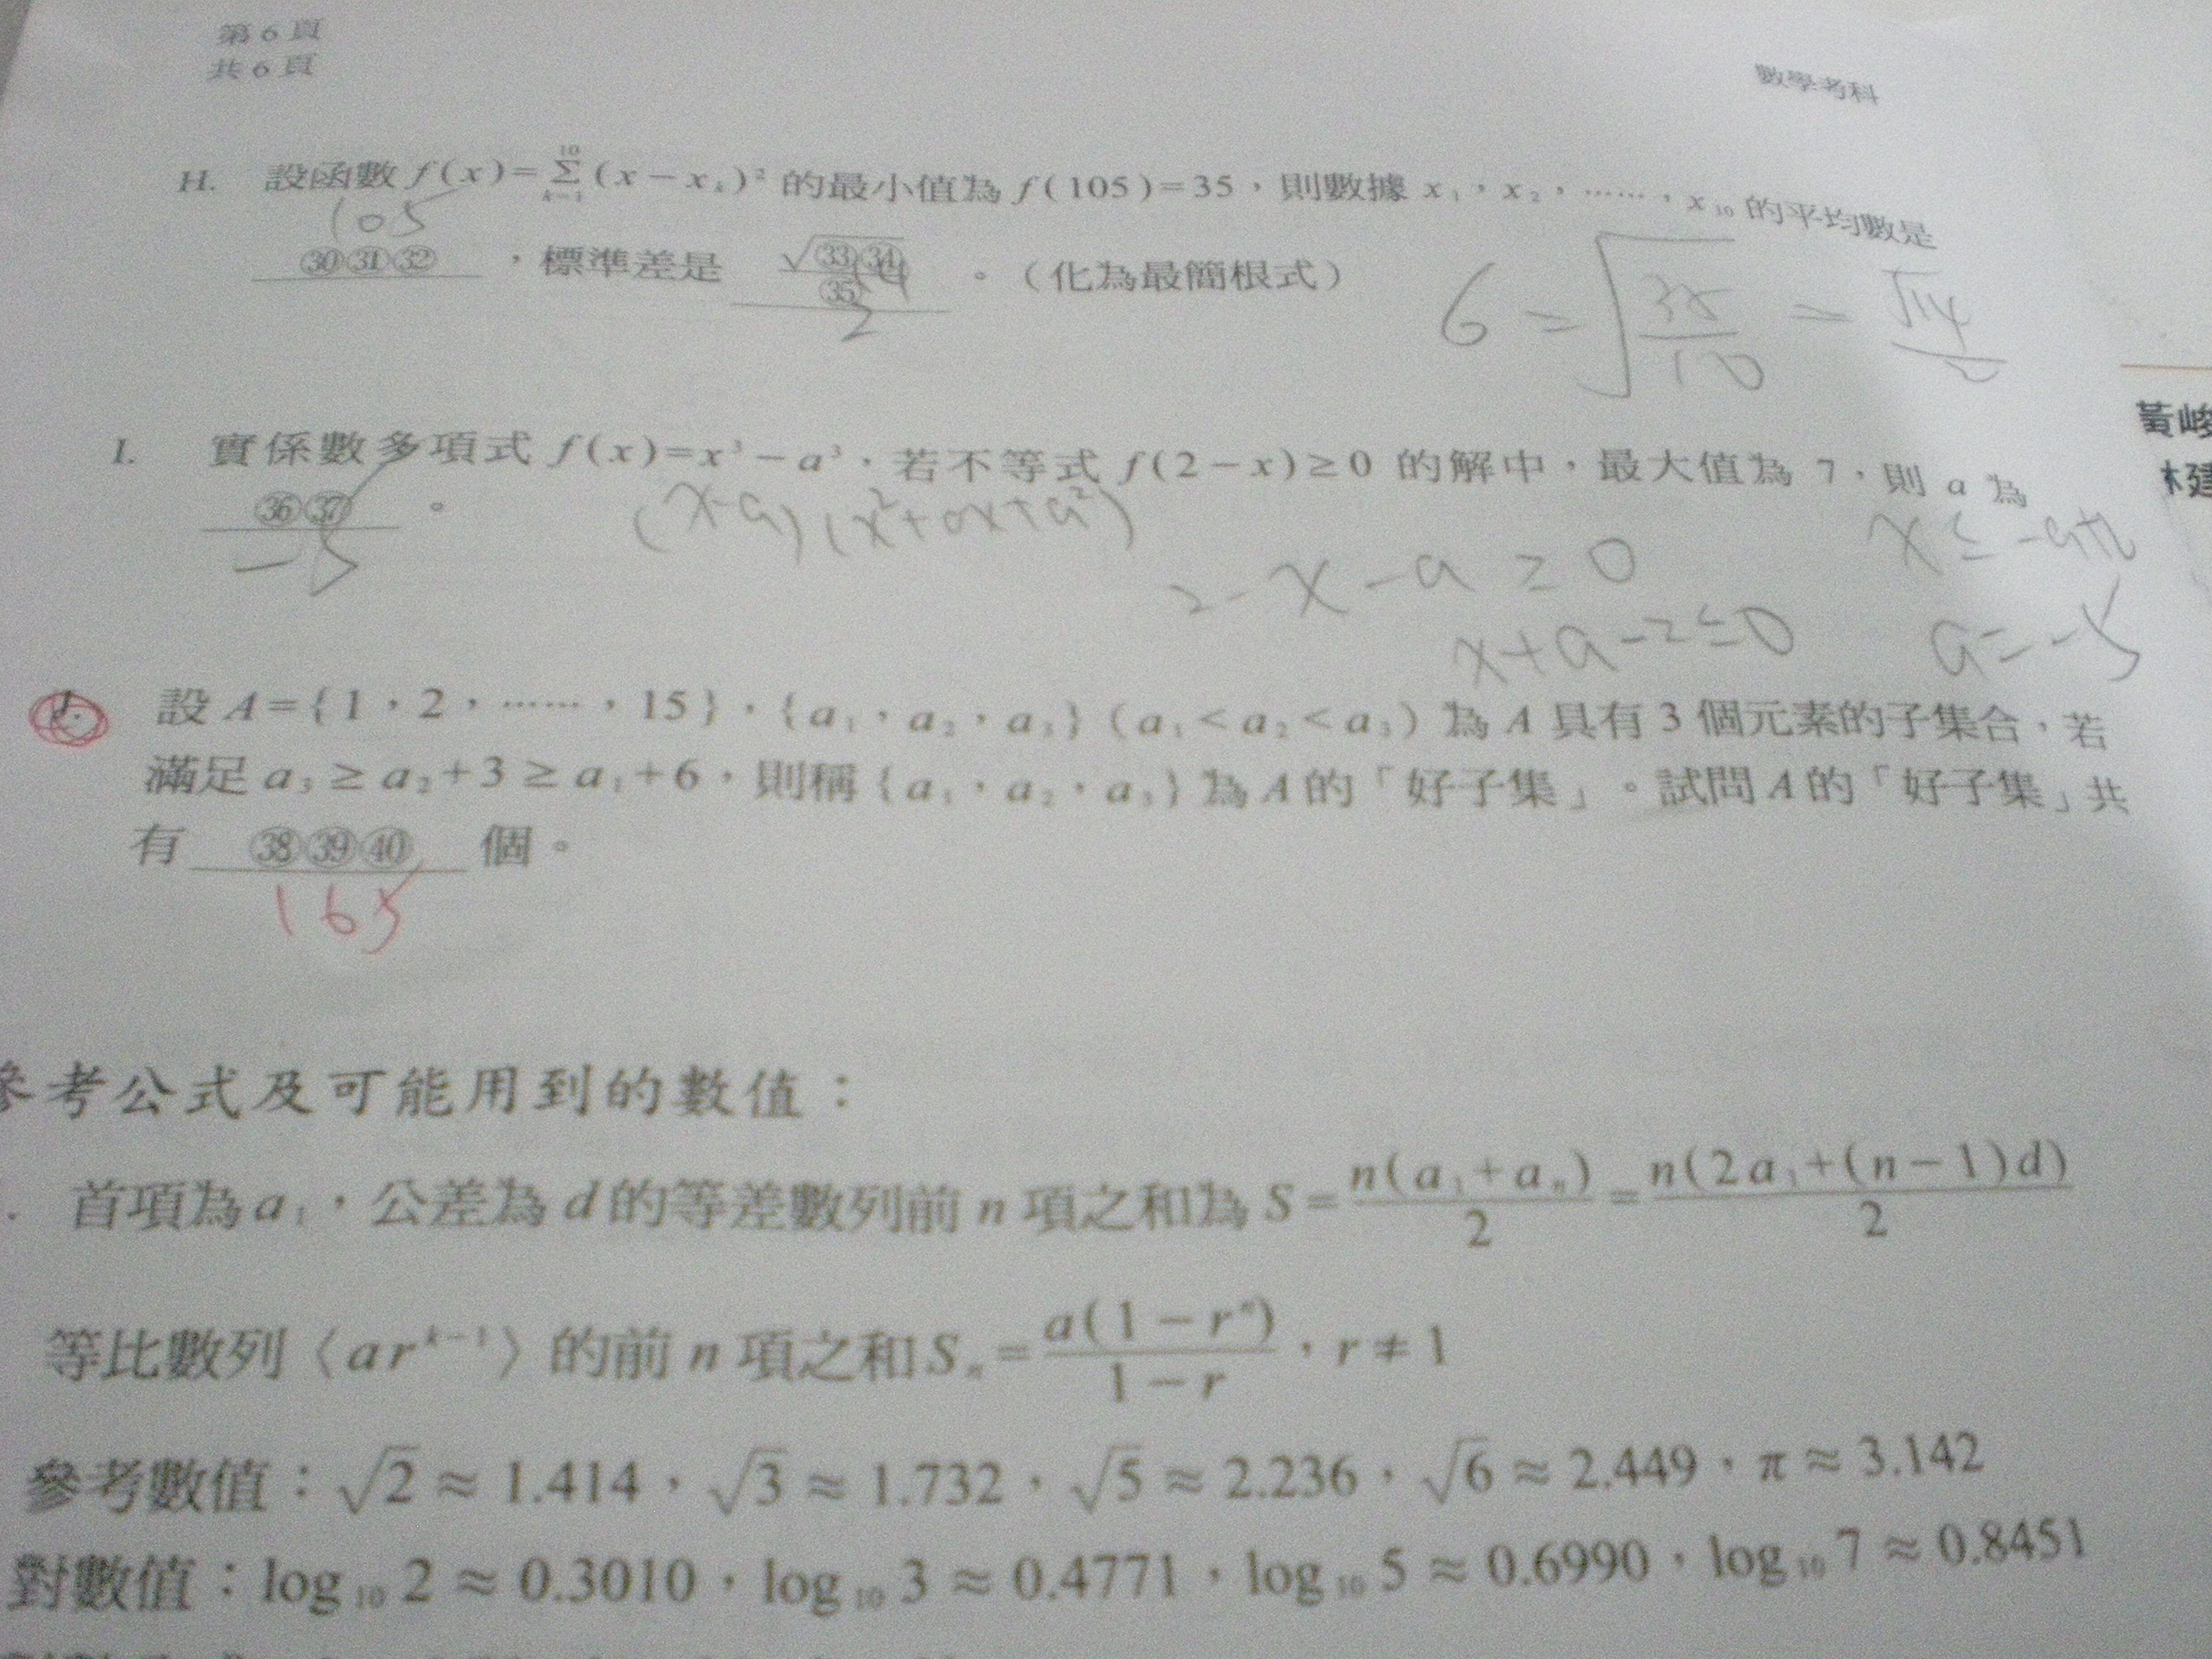 第6頁
共6頁
數學考科
H. 設函數 f(x)=Σ_{k=1}^{10}(x−x_k)² 的最小值為 f(105)=35，則數據 x₁，x₂，……，x₁₀ 的平均數是
105
㉚㉛㉜，標準差是 √㉝㉞/㉟。（化為最簡根式）
14
2
6 = √(35/10) = √14/2
黃峻
林建
I. 實係數多項式 f(x)=x³−a³，若不等式 f(2−x)≥0 的解中，最大值為 7，則 a 為
㊱㊲。
−5
(x−a)(x²+ax+a²)
2−x−a ≥ 0
x+a−2≤0
x ≤ −a+2
a=−5
J. 設 A={1，2，……，15}，{a₁，a₂，a₃}(a₁<a₂<a₃) 為 A 具有 3 個元素的子集合，若
滿足 a₃ ≥ a₂+3 ≥ a₁+6，則稱 {a₁，a₂，a₃} 為 A 的「好子集」。試問 A 的「好子集」共
有 ㊳㊴㊵ 個。
165
參考公式及可能用到的數值：
首項為 a₁，公差為 d 的等差數列前 n 項之和為 S=n(a₁+aₙ)/2=n(2a₁+(n−1)d)/2
等比數列〈ar^{k−1}〉的前 n 項之和 Sₙ=a(1−rⁿ)/(1−r)，r≠1
參考數值：√2≈1.414，√3≈1.732，√5≈2.236，√6≈2.449，π≈3.142
對數值：log₁₀2≈0.3010，log₁₀3≈0.4771，log₁₀5≈0.6990，log₁₀7≈0.8451